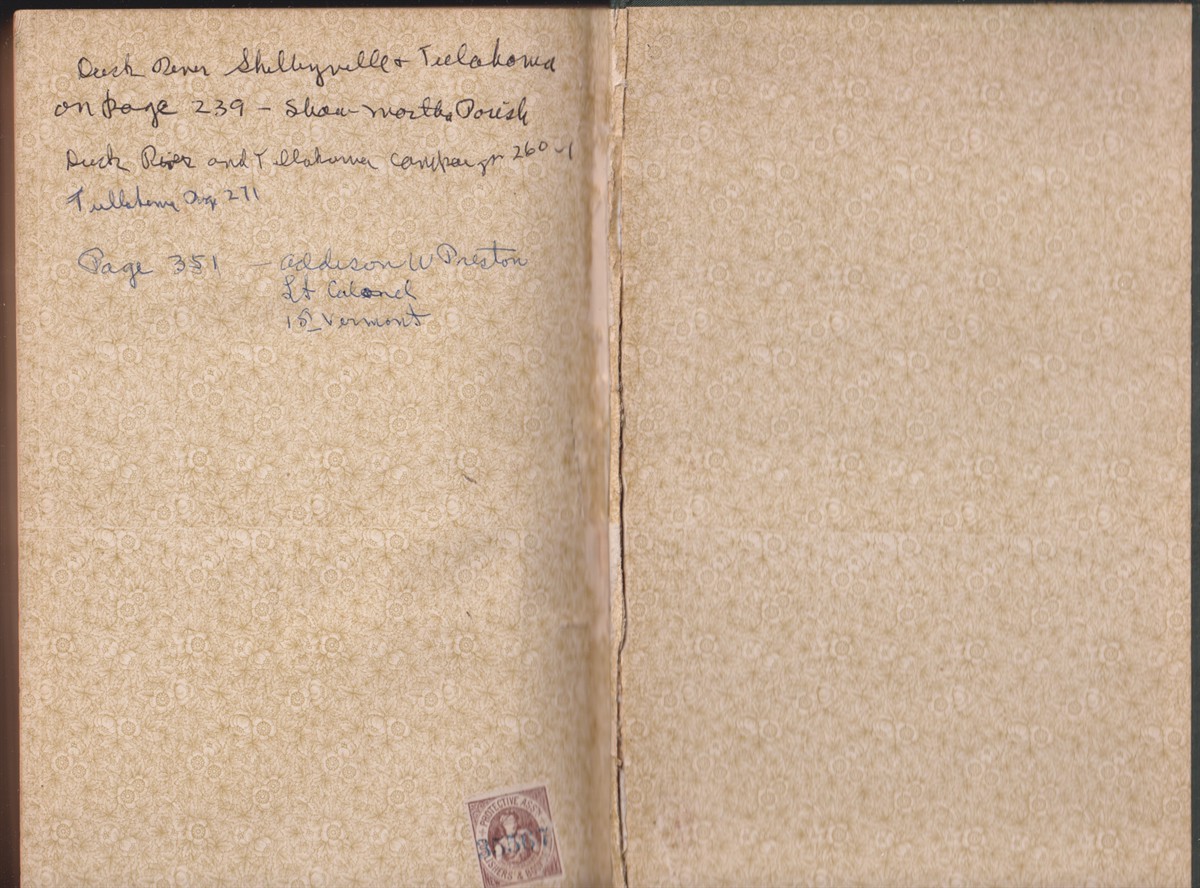 Duck River Shelbyville & Tullahoma
on page 239 - Show Norths Polish
Duck River and Tullahoma Campaign 260-1
Tullahoma Pag 271
Page 351 - Addison W Preston
Lt Colonel
1st Vermont
PROTECTIVE ASS'N
35567